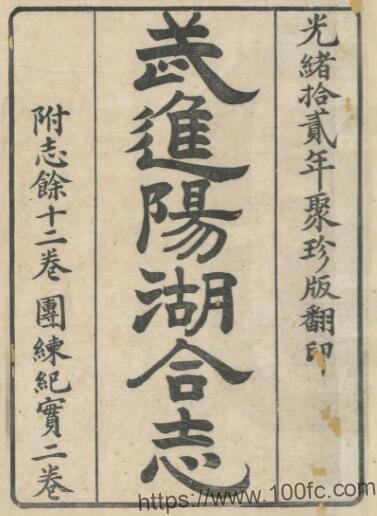 光緒拾貳年聚珍版翻印
武進陽湖合志
附志餘十二卷 團練紀實二卷
https://www.100fc.com